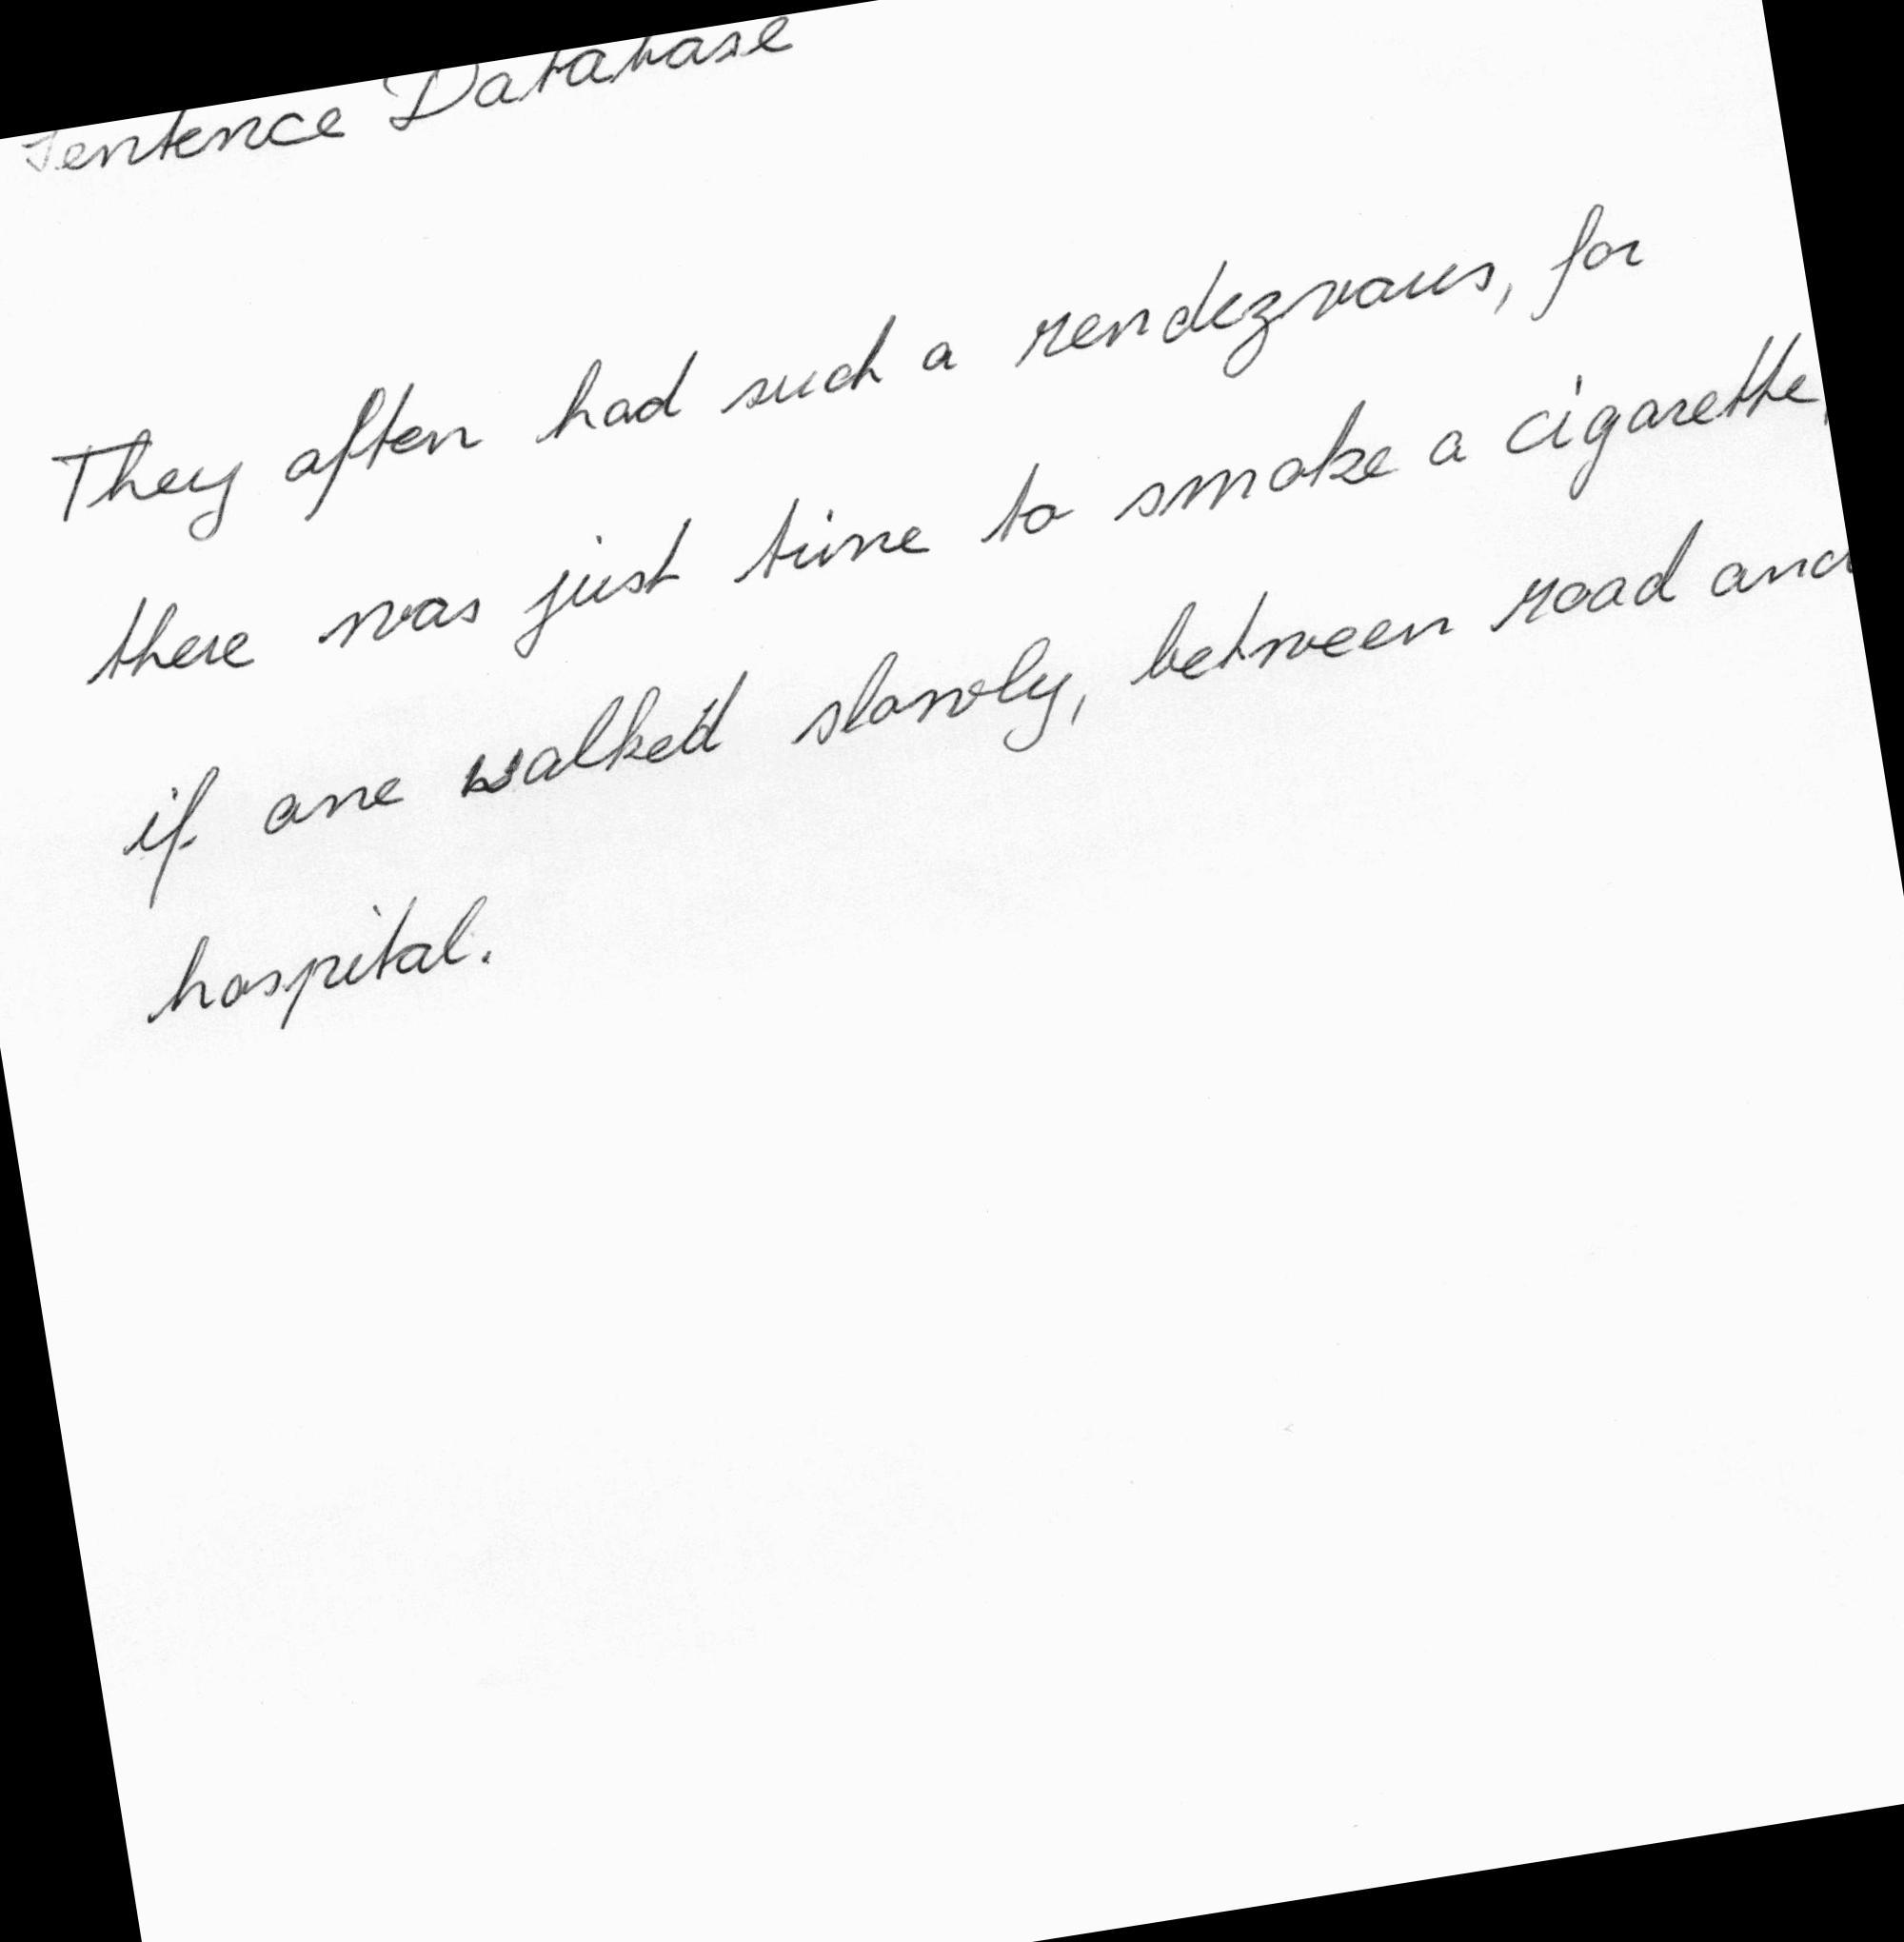 Sentence Database
They often had such a rendezvous, for
there was just time to smoke a cigarette,
if one walked slowly, between road and
hospital.